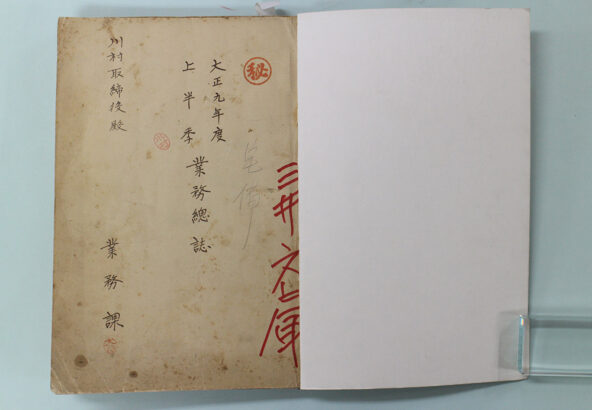 秘
大正九年度
上半季
業務總誌
三井文庫
川村取締役殿
業務課